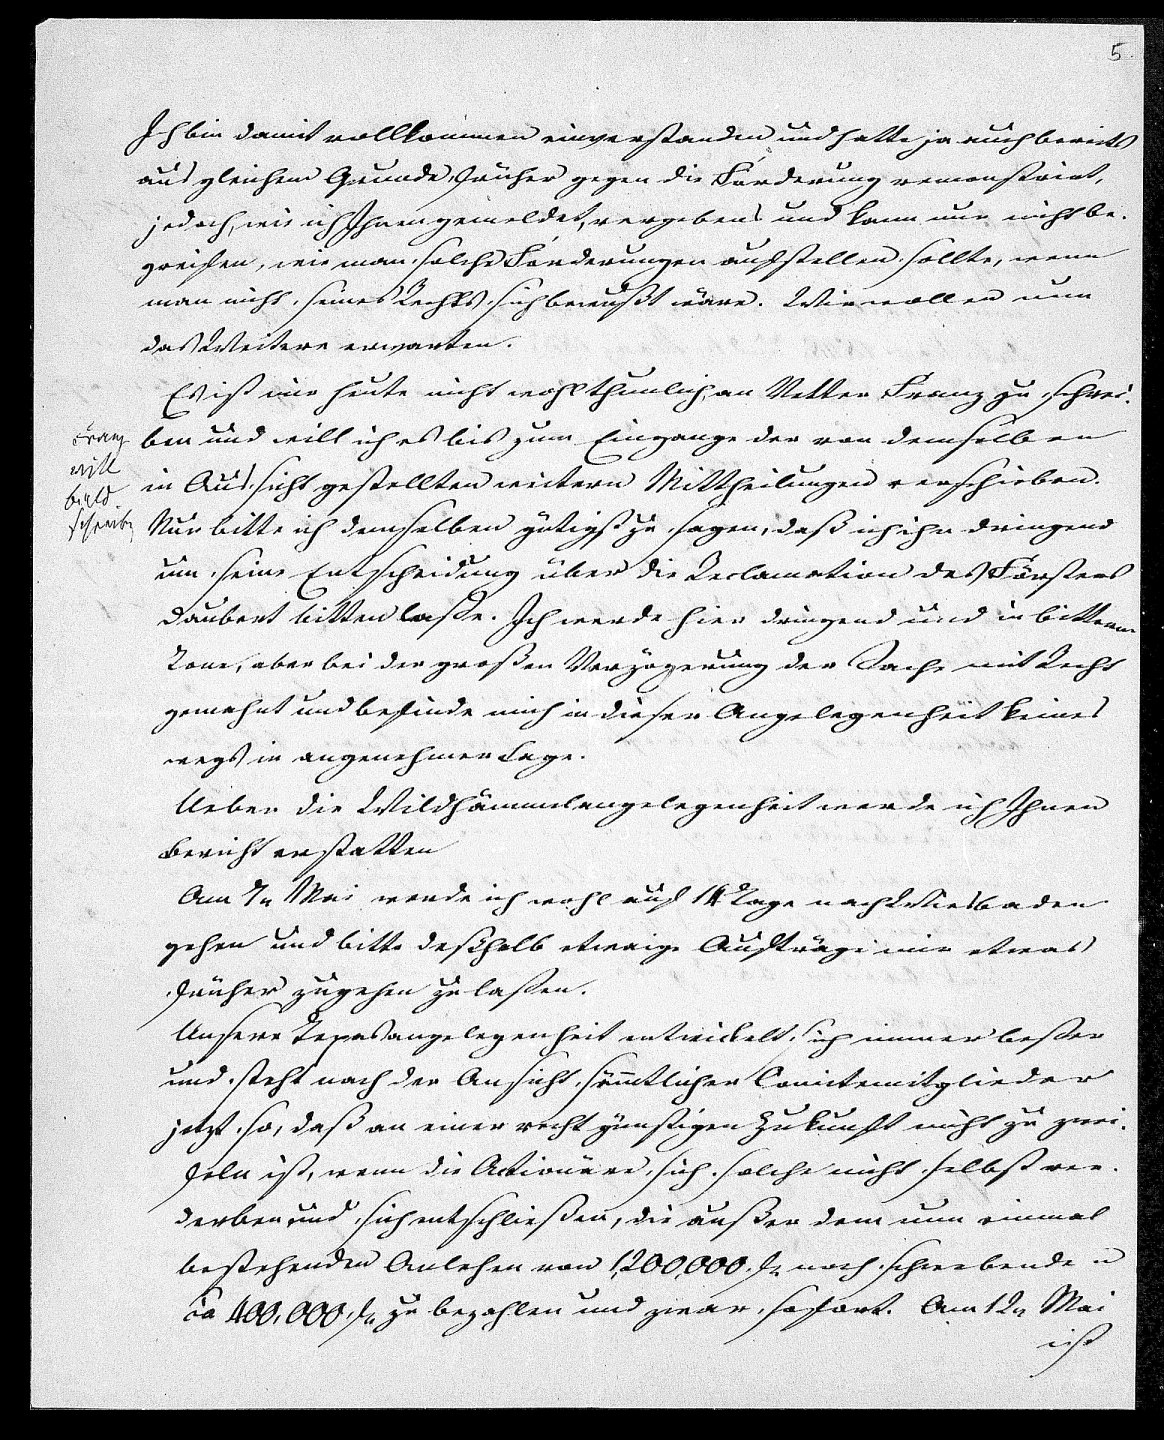 5.
Ich bin damit vollkommen einverstanden und hatte ja auch bereits
aus gleichem Grunde früher gegen die Forderung remonstrirt,
jedoch, wie ich Ihnen gemeldet, vergebens und kann nur nicht be-
greifen, wie man solche Forderungen aufstellen sollte, wenn
man nicht seines Rechts sich bewußt wäre. Wir wollen nun
das Weitere erwarten.
Es ist mir heute nicht wohl thunlich, an Vetter Franz zu schrei-
ben und will ich es bis zum Eingange der von demselben
in Aussicht gestellten weitern Mittheilungen verschieben.
Franz
will
bald
schreiben
Nur bitte ich demselben gütigst zu sagen, daß ich ihn dringend
um seine Entscheidung über die Reclamation des Försters
Daubert bitten laße. Ich werde hier dringend und in bitterem
Tone, aber bei der großen Verzögerung der Sache mit Recht
gemahnt und befinde mich in dieser Angelegenheit keines
wegs in angenehmer Lage.
Ueber die Wildhämmelangelegenheit werde ich Ihnen
Bericht erstatten
Am 7n Mai werde ich wohl auf 14 Tage nach Wiesbaden
gehen und bitte deßhalb etwaige Aufträge mir etwas
früher zugehen zu laßen.
Unsere Texasangelegenheit entwickelt sich immer beßer
und steht nach der Ansicht sämmtlicher Comitemitglieder
jetzt so, daß an einer recht günstigen Zukunft nicht zu zwei-
feln ist, wenn die Actionäre sich solche nicht selbst ver-
derben und sich entschließen, die außer dem nun einmal
bestehenden Anlehen von 1,200,000 fl. noch schwebenden
ca 400,000 fl. zu bezahlen und zwar sofort. Am 12n Mai
ist